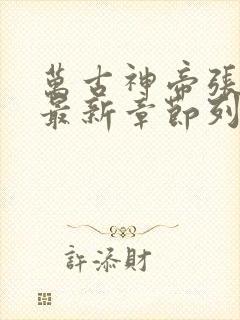 萬古神帝張
最新章節列
許添財